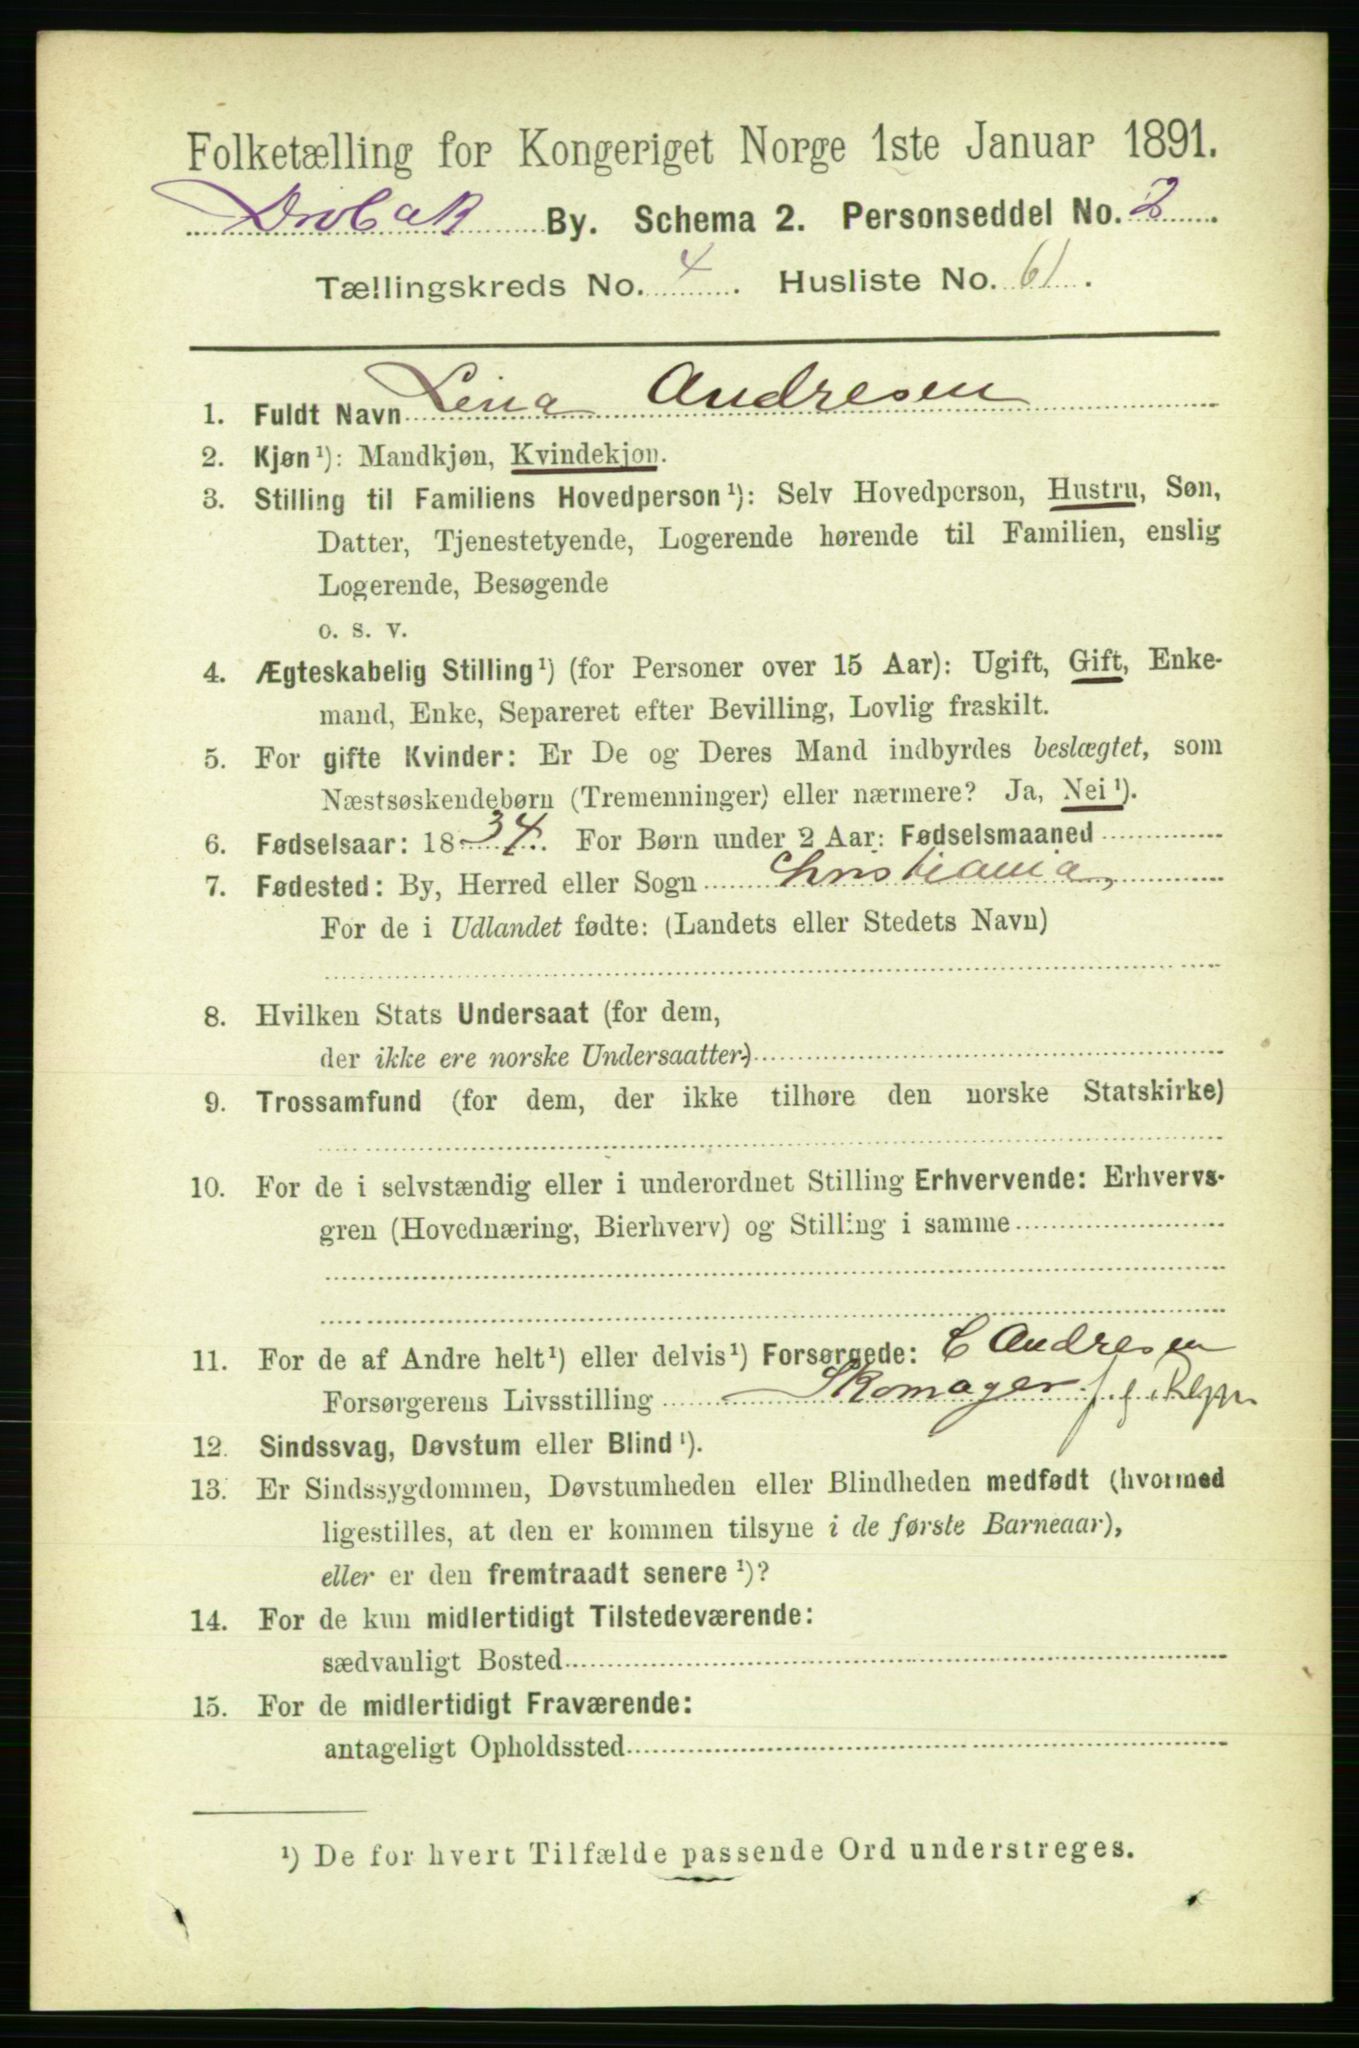 Folketælling for Kongeriget Norge 1ste Januar 1891.
Drøbak By. Schema 2. Personseddel No. 2.
Tællingskreds No. 4. Husliste No. 61.
1. Fuldt Navn Lena Andresen
2. Kjøn¹): Mandkjøn, Kvindekjøn.
3. Stilling til Familiens Hovedperson¹): Selv Hovedperson, Hustru, Søn,
Datter, Tjenestetyende, Logerende hørende til Familien, enslig
Logerende, Besøgende
o. s. v.
4. Ægteskabelig Stilling¹) (for Personer over 15 Aar): Ugift, Gift, Enke-
mand, Enke, Separeret efter Bevilling, Lovlig fraskilt.
5. For gifte Kvinder: Er De og Deres Mand indbyrdes beslægtet, som
Næstsøskendebørn (Tremenninger) eller nærmere? Ja, Nei¹).
6. Fødselsaar: 1834. For Børn under 2 Aar: Fødselsmaaned
7. Fødested: By, Herred eller Sogn Christiania,
For de i Udlandet fødte: (Landets eller Stedets Navn)
8. Hvilken Stats Undersaat (for dem,
der ikke ere norske Undersaatter)
9. Trossamfund (for dem, der ikke tilhøre den norske Statskirke)
10. For de i selvstændig eller i underordnet Stilling Erhvervende: Erhvervs-
gren (Hovednæring, Bierhverv) og Stilling i samme
11. For de af Andre helt¹) eller delvis¹) Forsørgede: C Andresen
Forsørgerens Livsstilling Skomager
12. Sindssvag, Døvstum eller Blind¹).
13. Er Sindssygdommen, Døvstumheden eller Blindheden medfødt (hvormed
ligestilles, at den er kommen tilsyne i de første Barneaar),
eller er den fremtraadt senere¹)?
14. For de kun midlertidigt Tilstedeværende:
sædvanligt Bosted
15. For de midlertidigt Fraværende:
antageligt Opholdssted
¹) De for hvert Tilfælde passende Ord understreges.